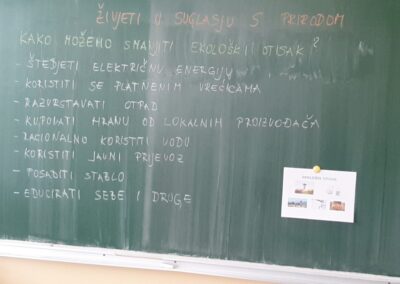 ŽIVJETI U SUGLASJU S PRIRODOM
KAKO MOŽEMO SMANJITI EKOLOŠKI OTISAK?
- ŠTEDJETI ELEKTRIČNU ENERGIJU
- KORISTITI SE PLATNENIM VREĆICAMA
- RAZVRSTAVATI OTPAD
- KUPOVATI HRANU OD LOKALNIH PROIZVOĐAČA
- RACIONALNO KORISTITI VODU
- KORISTITI JAVNI PRIJEVOZ
- POSADITI STABLO
- EDUCIRATI SEBE I DRUGE